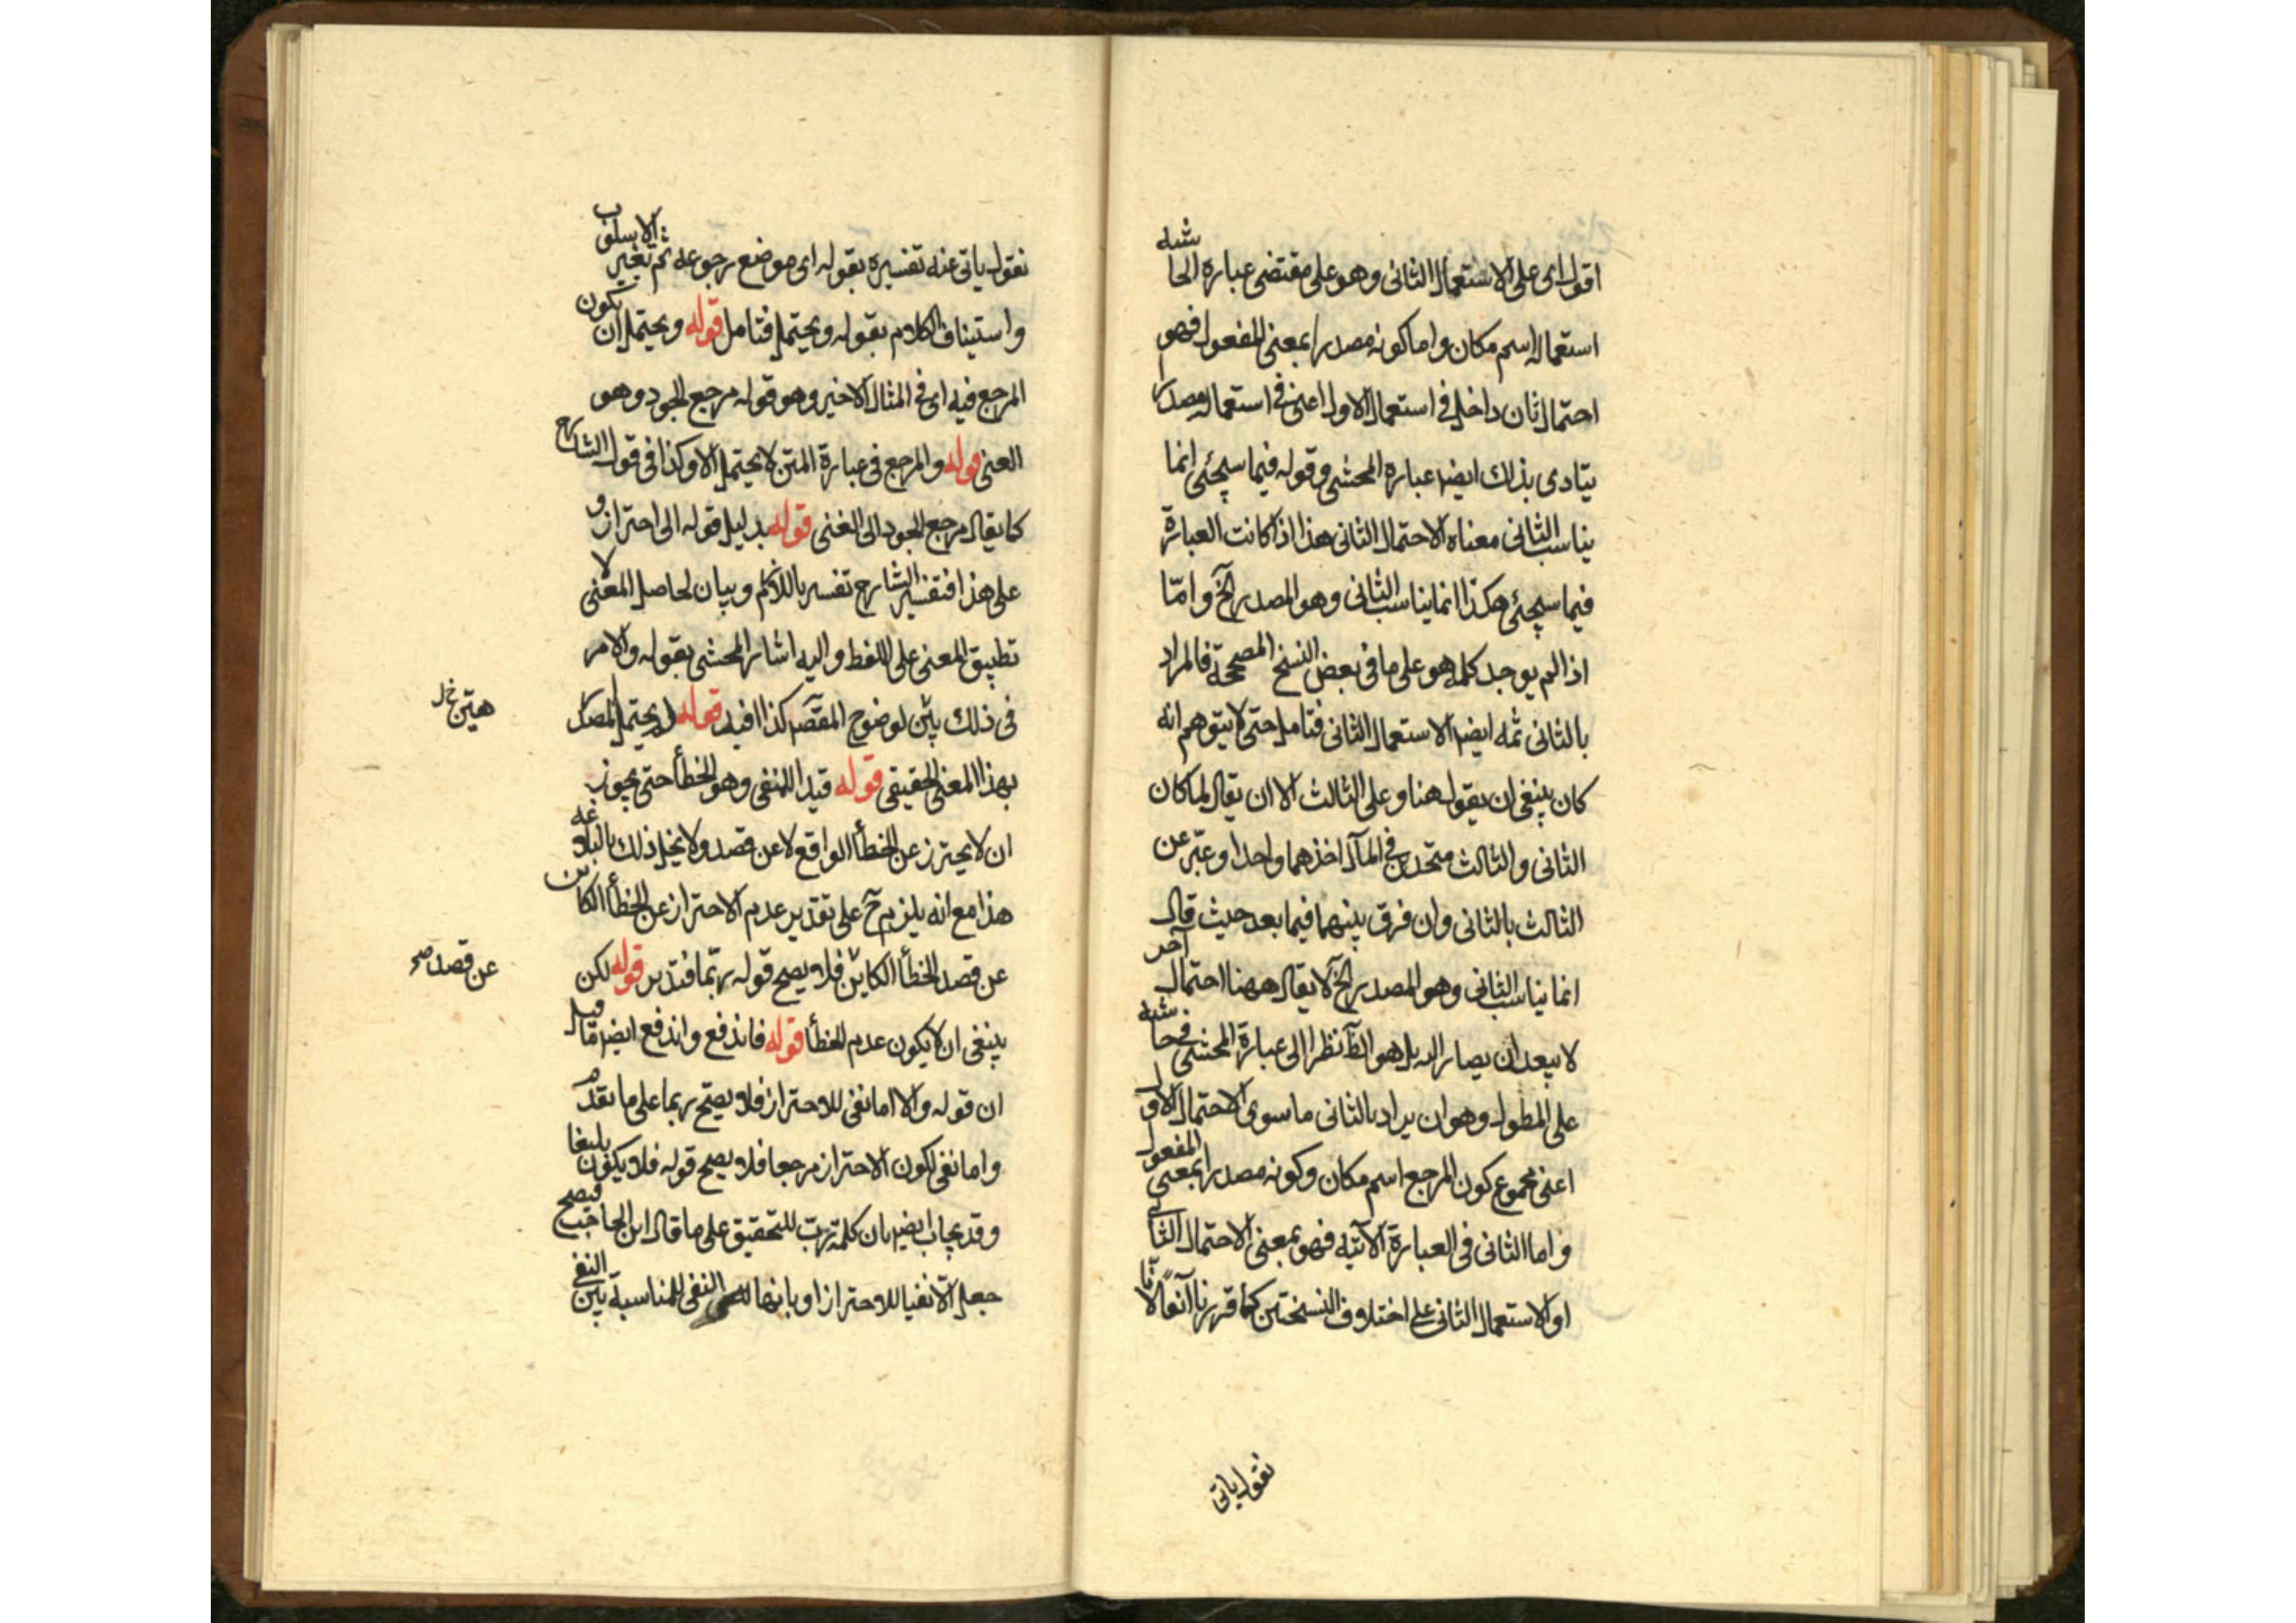 اقول اى على الاستعمال الثانى وهو على مقتضى عبارة الحاشيه
استعماله اسم مكان واما كونه مصدرا بمعنى المفعول فهو
احتمال ثان داخل فى استعمال الاول اعنى فى استعماله مصدرا
يتادى بذلك ايضا عبارة المحشى وقوله فيما سيجئى انما
يناسب الثانى معناه الاحتمال الثانى هذا اذا كانت العبارة
فيما سيجئى هكذا انما يناسب الثانى وهو المصدر الخ وامّا
اذا لم يوجد كلمة هو على ما فى بعض النسخ المصححة فالمراد
بالثانى ثمه ايضا الاستعمال الثانى فتامل حتى لا يتوهم انه
كان ينبغى ان يقول هنا وعلى الثالث الا ان يقال لما كان
الثانى والثالث متحدين فى المآل اخذهما واحدا وعبّر عن
الثالث بالثانى وان فرق بينهما فيما بعد حيث قال
انما يناسب الثانى وهو المصدر الخ لا يقال ههنا احتمال آخر
لا يبعد ان يصار اليه بل هو الظ نظرا الى عبارة المحشى فى حاشيه
على المطول وهو ان يراد بالثانى ما سوى الاحتمال الاول
اعنى مجموع كون المرجع اسم مكان وكونه مصدرا بمعنى المفعول
واما الثانى فى العبارة الآتية فهو بمعنى الاحتمال الثانى
او الاستعمال الثانى على اختلاف النسختين كما قررنا آنفا لانا
نقول ياتى
نقول ياتى عنه تفسيره بقوله اى موضع رجوعه ثم تغيير الاسلوب
واستيناف الكلام بقوله ويحتمل فتامل قوله ويحتمل ان يكون
المرجع فيه اى فى المثال الاخير وهو قوله مرجع الجود وهو
الغنى قوله والمرجع فى عبارة المتن لا يحتمل الا وكذا فى قول الشارح
كما يقال مرجع الجود الى الغنى قوله بدليل قوله الى احتراز و
على هذا فتفسير الشارح تفسير باللازم وبيان لحاصل المعنى لا
تطبيق المعنى على اللفظ واليه اشار المحشى بقوله والامر
فى ذلك بيّن لوضوح المقصد كذا افيد قوله لا يحتمل المصدر
هيّن خل
بهذا المعنى الحقيقى قوله قيدا للمنفى وهو الخطأ حتى يجوز
ان لا يحترز عن الخطأ الواقع لا عن قصد ولا يخل ذلك بالبلاغه
هذا مع انه يلزم ح على تقدير عدم الاحتراز عن الخطأ الكاين
عن قصد الخطأ الكاين فلا يصح قوله ربّما فتدبر قوله لكن
عن قصد صح
ينبغى ان لا يكون عدم الخطأ قوله فاندفع واندفع ايضا ما قيل
ان قوله والا اما نفى للاحتراز فلا يصح ربما على ما تقدم
واما نفى لكون الاحتراز مرجعا فلا يصح قوله فلا يكون بليغا
وقد يجاب ايضا بان كلمة ربّ للتحقيق على ما قال ابن الحاجب فيصح
جعل الا نفيا للاحتراز او بانها النفى للمناسبة بين النفى